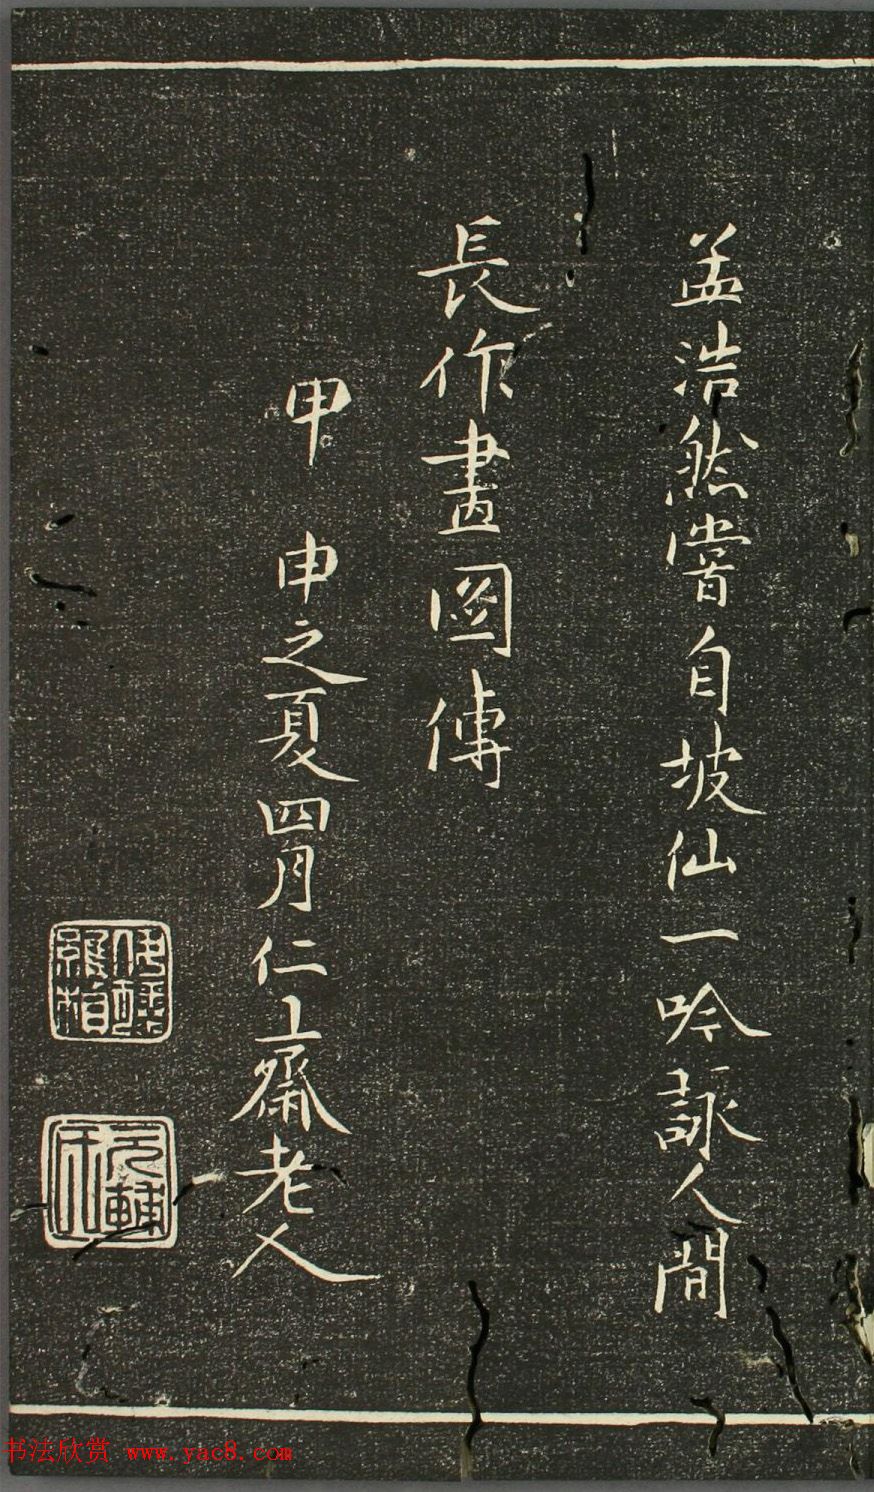 孟浩然嘗自坡仙一吟詠人間
長作畫圖傳
甲申之夏四月仁齋老人
伊藤維楨
书法欣赏 www.yac8.com